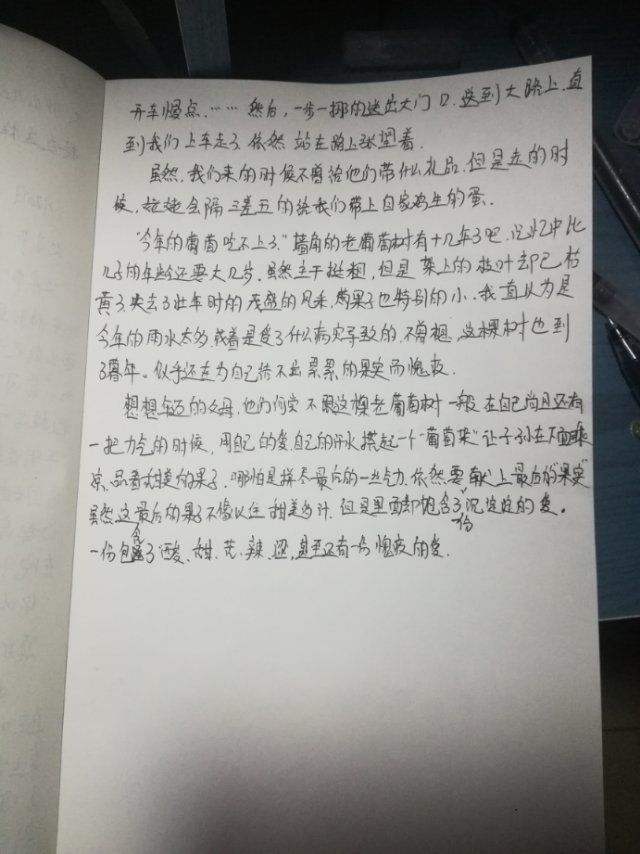 开车慢点……然后,一步一挪的送出大门口.送到大路上.直
到我们上车走了.依然站在路上张望着.
虽然,我们来的时候不曾给他们带什么礼品.但是走的时
候,姥姥会隔三差五的给我们带上自家鸡生的蛋.
"今年的葡萄吃不上了."墙角的老葡萄树有十几年了吧.记忆中比
儿子的年龄还要大几岁.虽然主干挺粗,但是架上的枝叶却已枯
黄了.失去了壮年时的茂盛的风采,葡果子也特别的小.我直以为是
今年的雨水太多,或者是受了什么病灾导致的.不曾想,这棵树也到
了暮年。似乎还在为自己结不出累累的果实而愧疚.
想想年迈的父母,他们何尝不跟这棵老葡萄树一般.在自己尚且还有
一把力气的时候,用自己的爱.自己的汗水搭起一个"葡萄架"让子孙在下面乘
凉.品着甜美的果子.哪怕是拼尽最后的一丝气力.依然要献上最后的"果实"
虽然这最后的果子不像以往甜美多汁.但是里面却饱含了一份沉淀淀的爱。
一份包含了酸、甜、苦、辣、涩,甚至还有一份愧疚的爱.